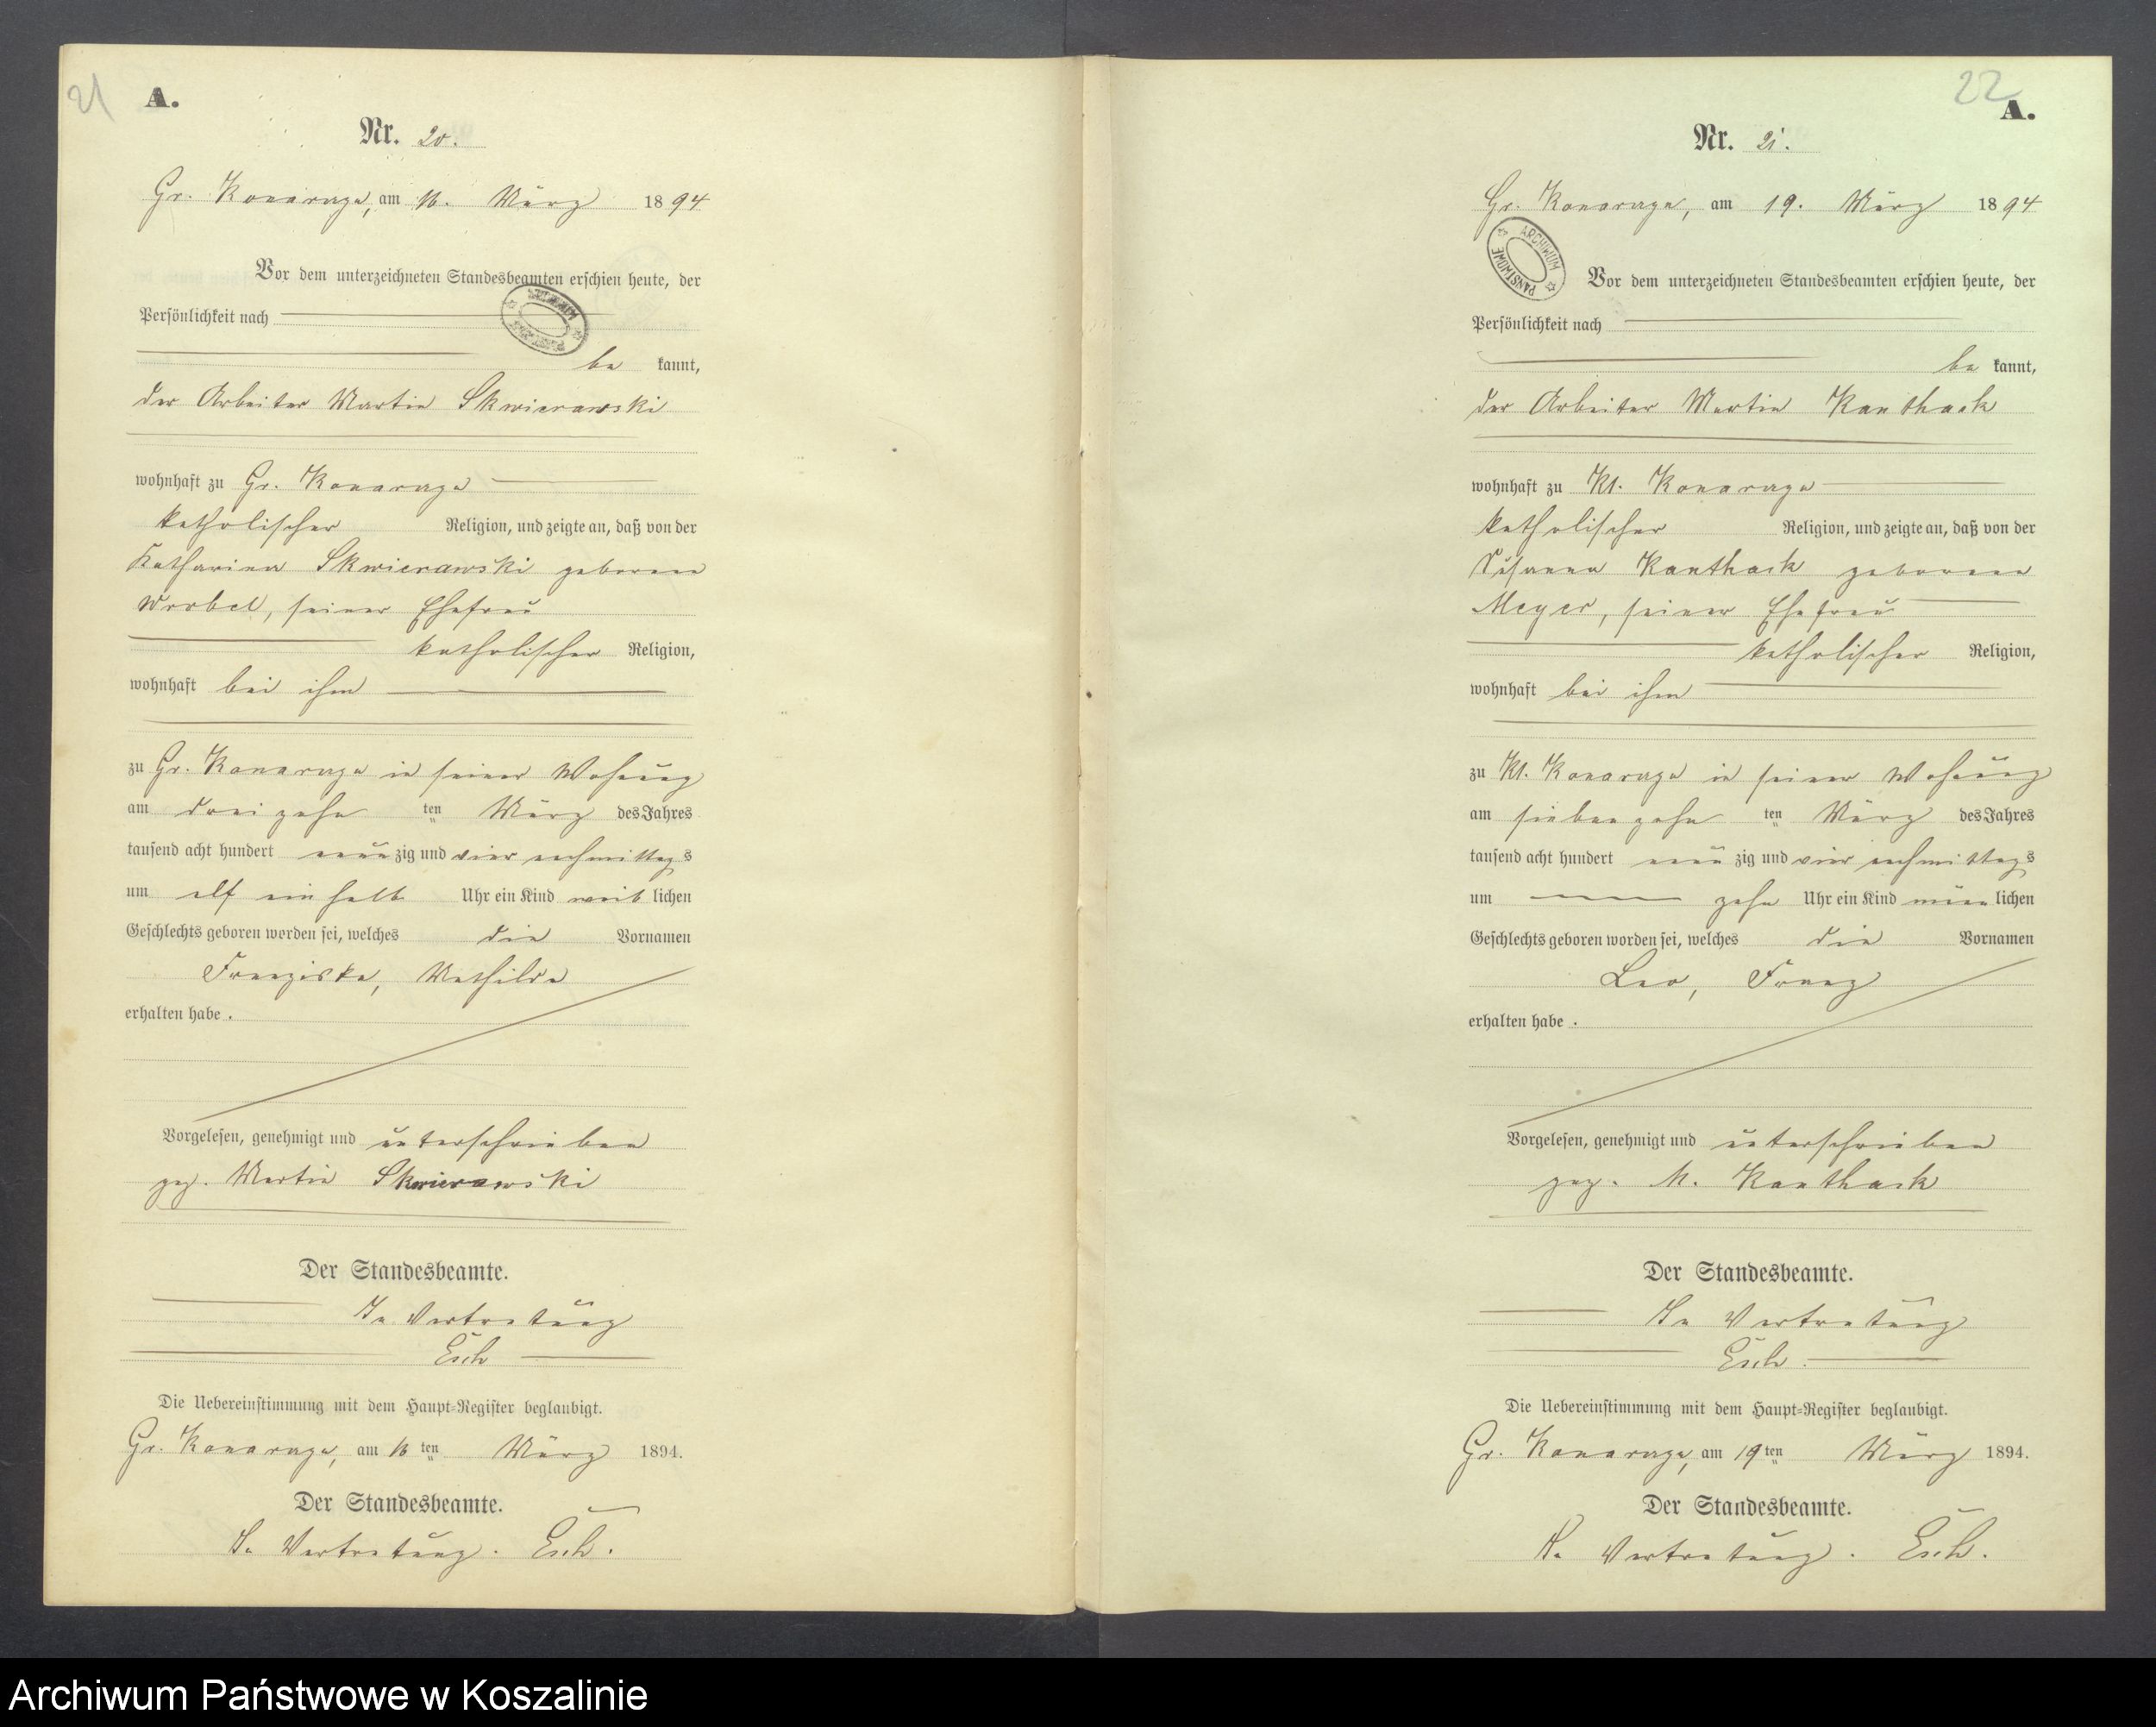 21
A.
Nr. 20.
Gr. Konarczyn, am 16. März 1894
Vor dem unterzeichneten Standesbeamten erschien heute, der
Persönlichkeit nach
be kannt,
der Arbeiter Martin Skwierawski
wohnhaft zu Gr. Konarczyn
katholischer Religion, und zeigte an, daß von der
Katharina Skwierawski geborene
Wrobel, seiner Ehefrau
katholischer Religion,
wohnhaft bei ihm
zu Gr. Konarczyn in seiner Wohnung
am dreizehn ten März des Jahres
tausend acht hundert neun zig und vier nachmittags
um elf ein halb Uhr ein Kind weib lichen
Geschlechts geboren worden sei, welches die Vornamen
Franziska, Mathilde
erhalten habe.
Vorgelesen, genehmigt und unterschrieben
gez. Martin Skwierawski
Der Standesbeamte.
In Vertretung
Esch
Die Uebereinstimmung mit dem Haupt-Register beglaubigt.
Gr. Konarczyn, am 16 ten März 1894.
Der Standesbeamte.
In Vertretung. Esch.
22
A.
Nr. 21.
Gr. Konarczyn, am 19. März 1894
ARCHIWUM PAŃSTWOWE
Vor dem unterzeichneten Standesbeamten erschien heute, der
Persönlichkeit nach
be kannt,
der Arbeiter Martin Kanthack
wohnhaft zu Kl. Konarczyn
katholischer Religion, und zeigte an, daß von der
Susanna Kanthack geborene
Meyer, seiner Ehefrau
katholischer Religion,
wohnhaft bei ihm
zu Kl. Konarczyn in seiner Wohnung
am siebenzehn ten März des Jahres
tausend acht hundert neun zig und vier nachmittags
um zehn Uhr ein Kind männ lichen
Geschlechts geboren worden sei, welches die Vornamen
Leo, Franz
erhalten habe.
Vorgelesen, genehmigt und unterschrieben
gez. M. Kanthack
Der Standesbeamte.
In Vertretung
Esch.
Die Uebereinstimmung mit dem Haupt-Register beglaubigt.
Gr. Konarczyn, am 19 ten März 1894.
Der Standesbeamte.
In Vertretung. Esch.
Archiwum Państwowe w Koszalinie